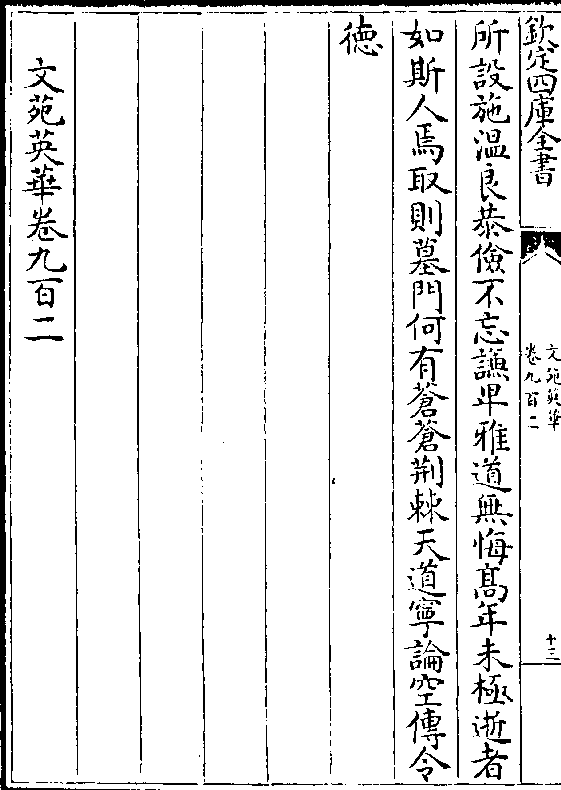 欽定四庫全書
文苑英華
卷九百二
十三
所設施温良恭儉不忘謙卑雅道無悔髙年未極逝者
如斯人焉取則墓門何有蒼蒼荆棘天道寧論空傳令
德
文苑英華卷九百二